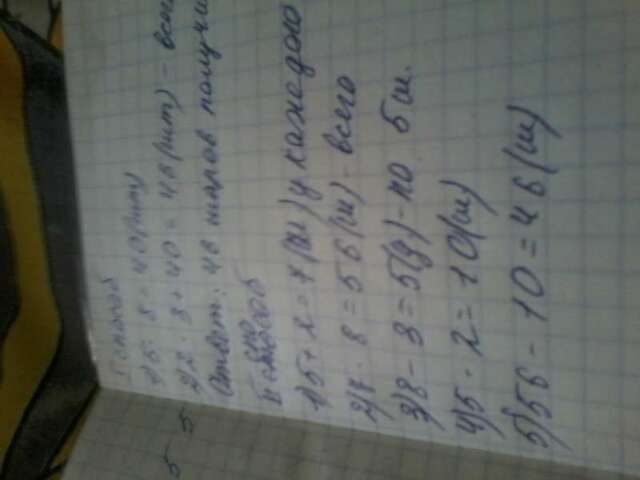 I способ
1) 5 · 8 = 40 (шт)
2) 2 · 3 + 40 = 46 (шт) - всего
Ответ: 46 шаров получи
II способ
1) 5 + 2 = 7 (ш) у каждого
2) 7 · 8 = 56 (ш) - всего
3) 8 - 3 = 5 (д) - по 5 ш.
4) 5 · 2 = 10 (ш)
5) 56 - 10 = 46 (ш)
5 5